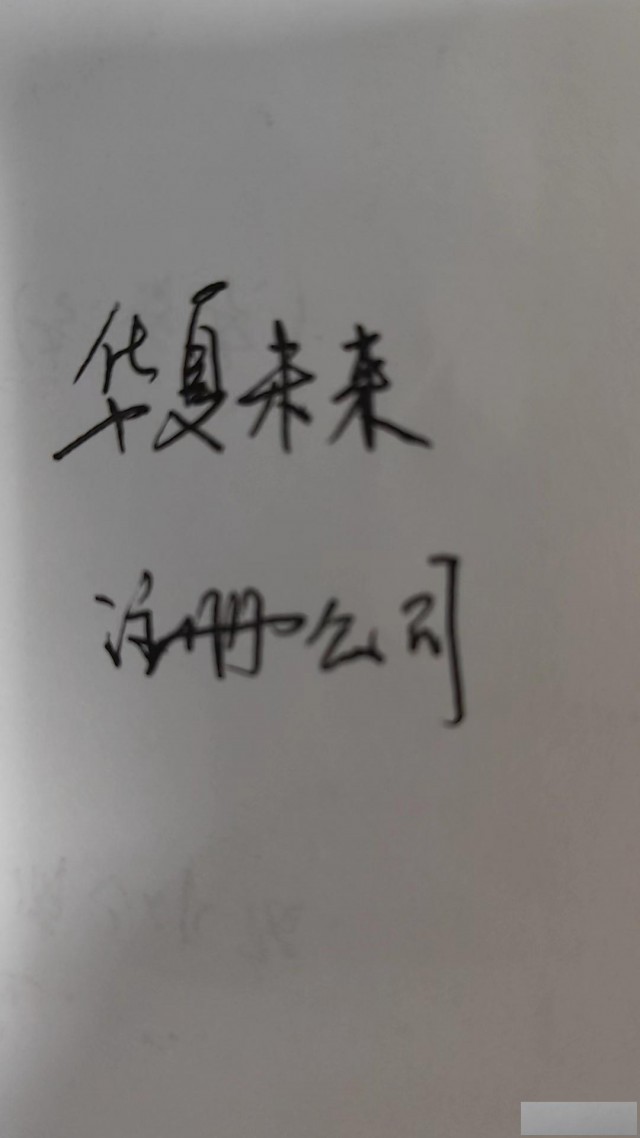 华夏未来
注册公司